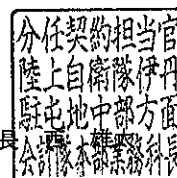 分任契約担当官
陸上自衛隊伊丹
駐屯地中部方面
長
会計隊本部業務科長